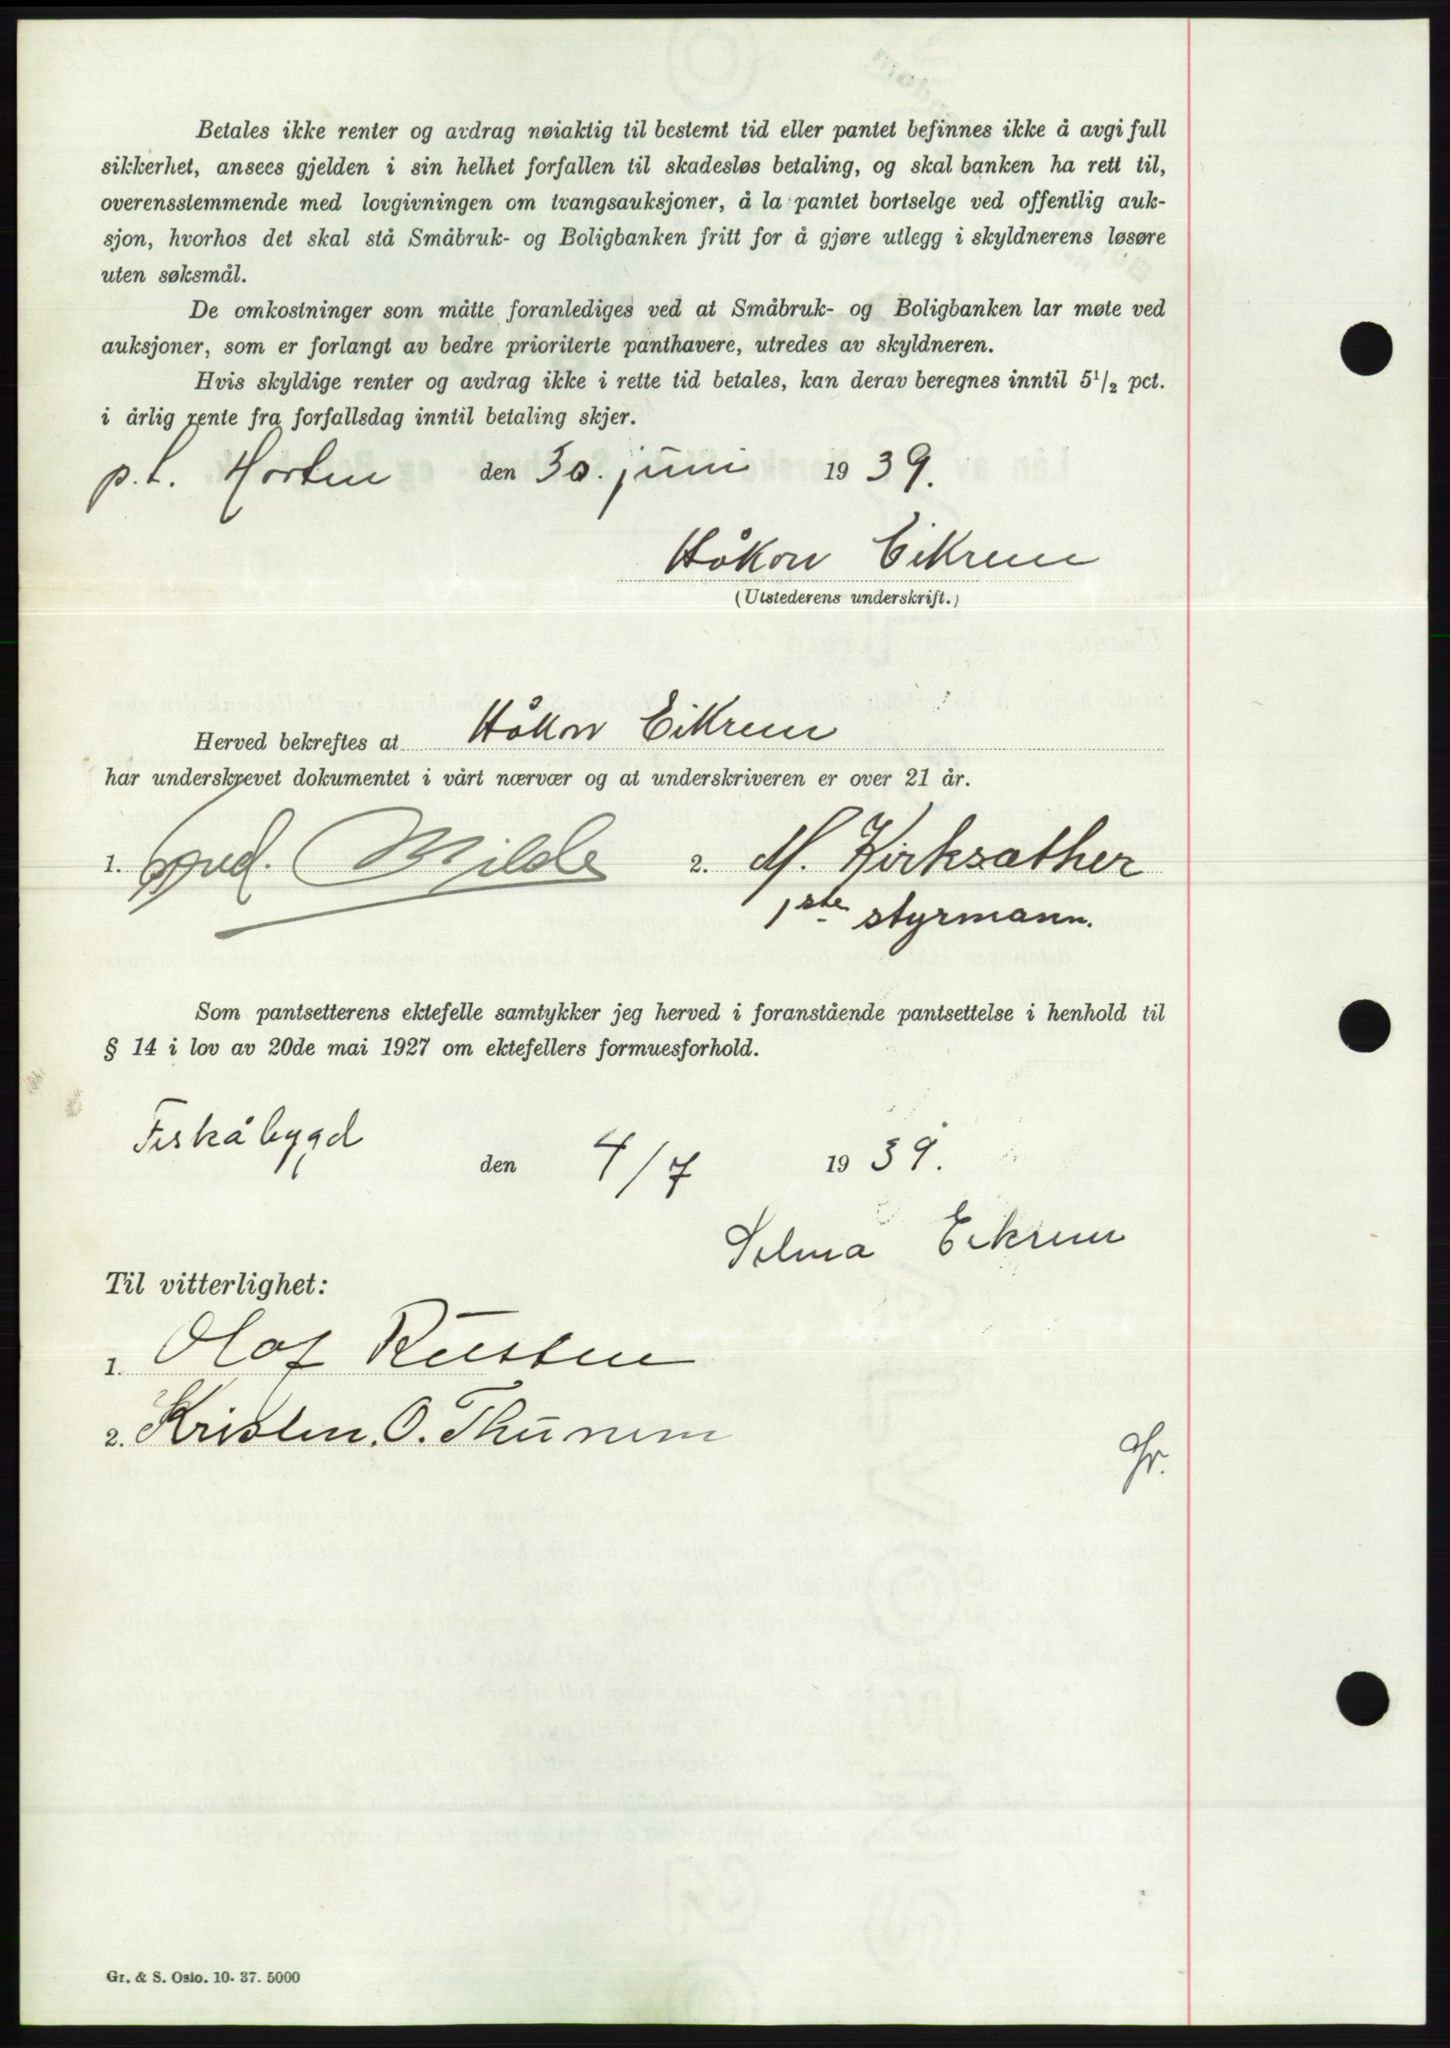 Betales ikke renter og avdrag nøiaktig til bestemt tid eller pantet befinnes ikke å avgi full
sikkerhet, ansees gjelden i sin helhet forfallen til skadesløs betaling, og skal banken ha rett til,
overensstemmende med lovgivningen om tvangsauksjoner, å la pantet bortselge ved offentlig auk-
sjon, hvorhos det skal stå Småbruk- og Boligbanken fritt for å gjøre utlegg i skyldnerens løsøre
uten søksmål.
De omkostninger som måtte foranlediges ved at Småbruk- og Boligbanken lar møte ved
auksjoner, som er forlangt av bedre prioriterte panthavere, utredes av skyldneren.
Hvis skyldige renter og avdrag ikke i rette tid betales, kan derav beregnes inntil 5½ pct.
i årlig rente fra forfallsdag inntil betaling skjer.
p.t. Horten den 30. juni 1939.
Håkon Eikrem
(Utstederens underskrift.)
Herved bekreftes at Håkon Eikrem
har underskrevet dokumentet i vårt nærvær og at underskriveren er over 21 år.
1. Milde 2. M. Kirksæther
1ste styrmann.
Som pantsetterens ektefelle samtykker jeg herved i foranstående pantsettelse i henhold til
§ 14 i lov av 20de mai 1927 om ektefellers formuesforhold.
Fiskåbygd den 4/7 1939.
Selma Eikrem
Til vitterlighet:
1. Olaf Rusten
2. Kristen. O. Thunem
Gr. & S. Oslo. 10. 37. 5000